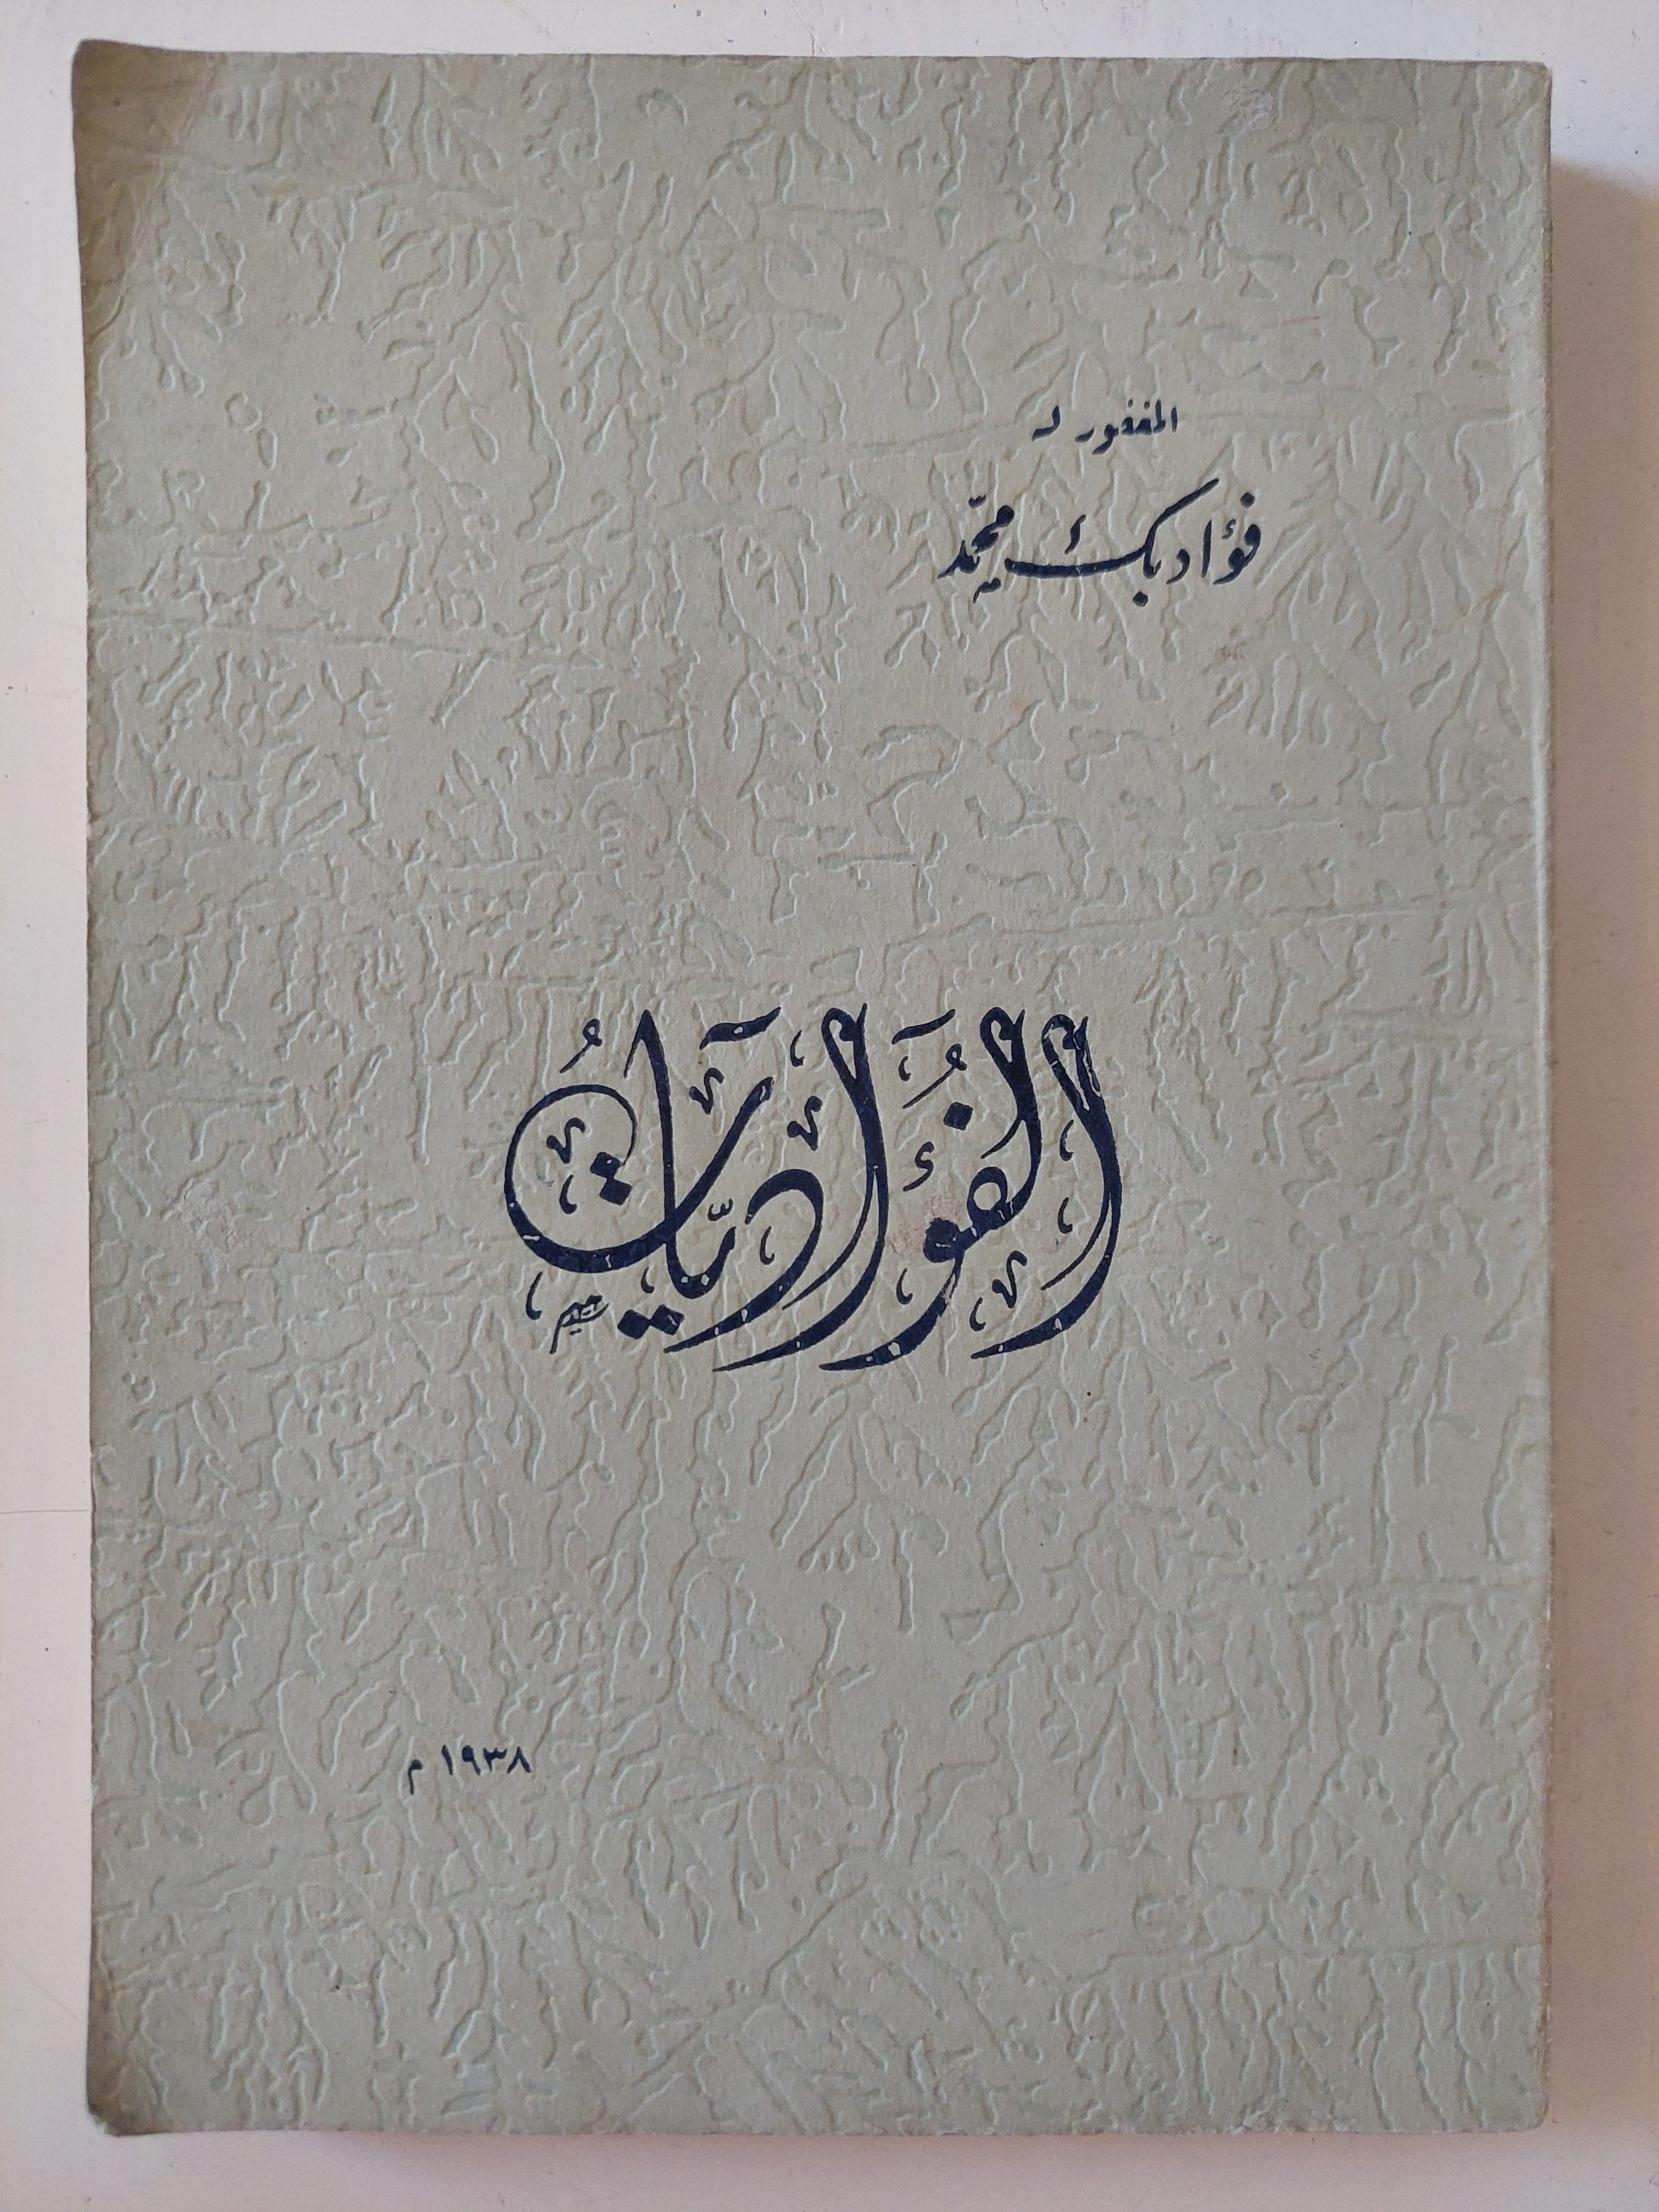 المغفور له
فؤاد بك محمّد
الفُؤَاديّاتُ
١٩٣٨ م